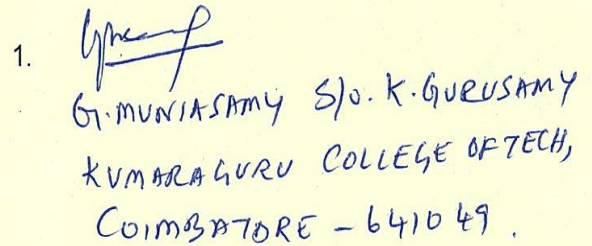 1.
G. MUNIASAMY S/o. K. GURUSAMY
KUMARAGURU COLLEGE OF TECH,
COIMBATORE - 641049.